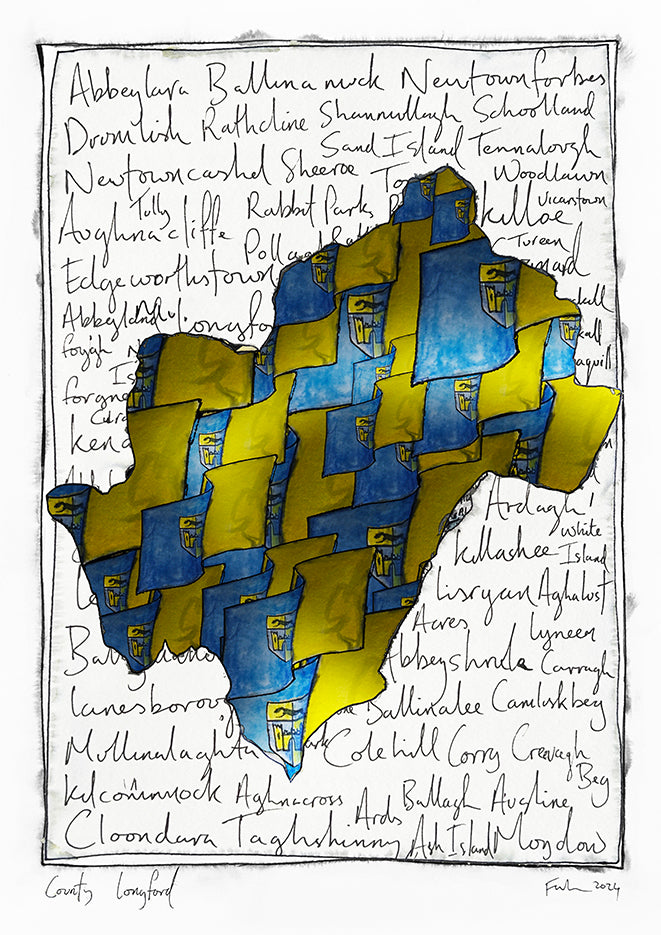 Abbeylara Ballinamuck Newtownforbes
Dromlish Rathcline Shanmullagh Schoolland
Sand Island Tennalough
Newtowncashel Sheeroe Woodlawn
Tully Rabbit Parks Killoe Vicarstown
Aughnacliffe Tureen
Edgeworthstown
Abbeyland Longfo
foygh
Is
forgne
Ardagh
White
Killashee Island
Lisryan Aghalust
Acres Lyneen
Abbeyshrule Carragh
Lanesboroug Ballinalee Camliskbeg
Mullinalaghta Colehill Corry Creevagh
Beg
Kilcommock Aghnacross Ards Ballagh Aughine
Cloondara Taghshinny Ash Island Moydow
County Longford 2024